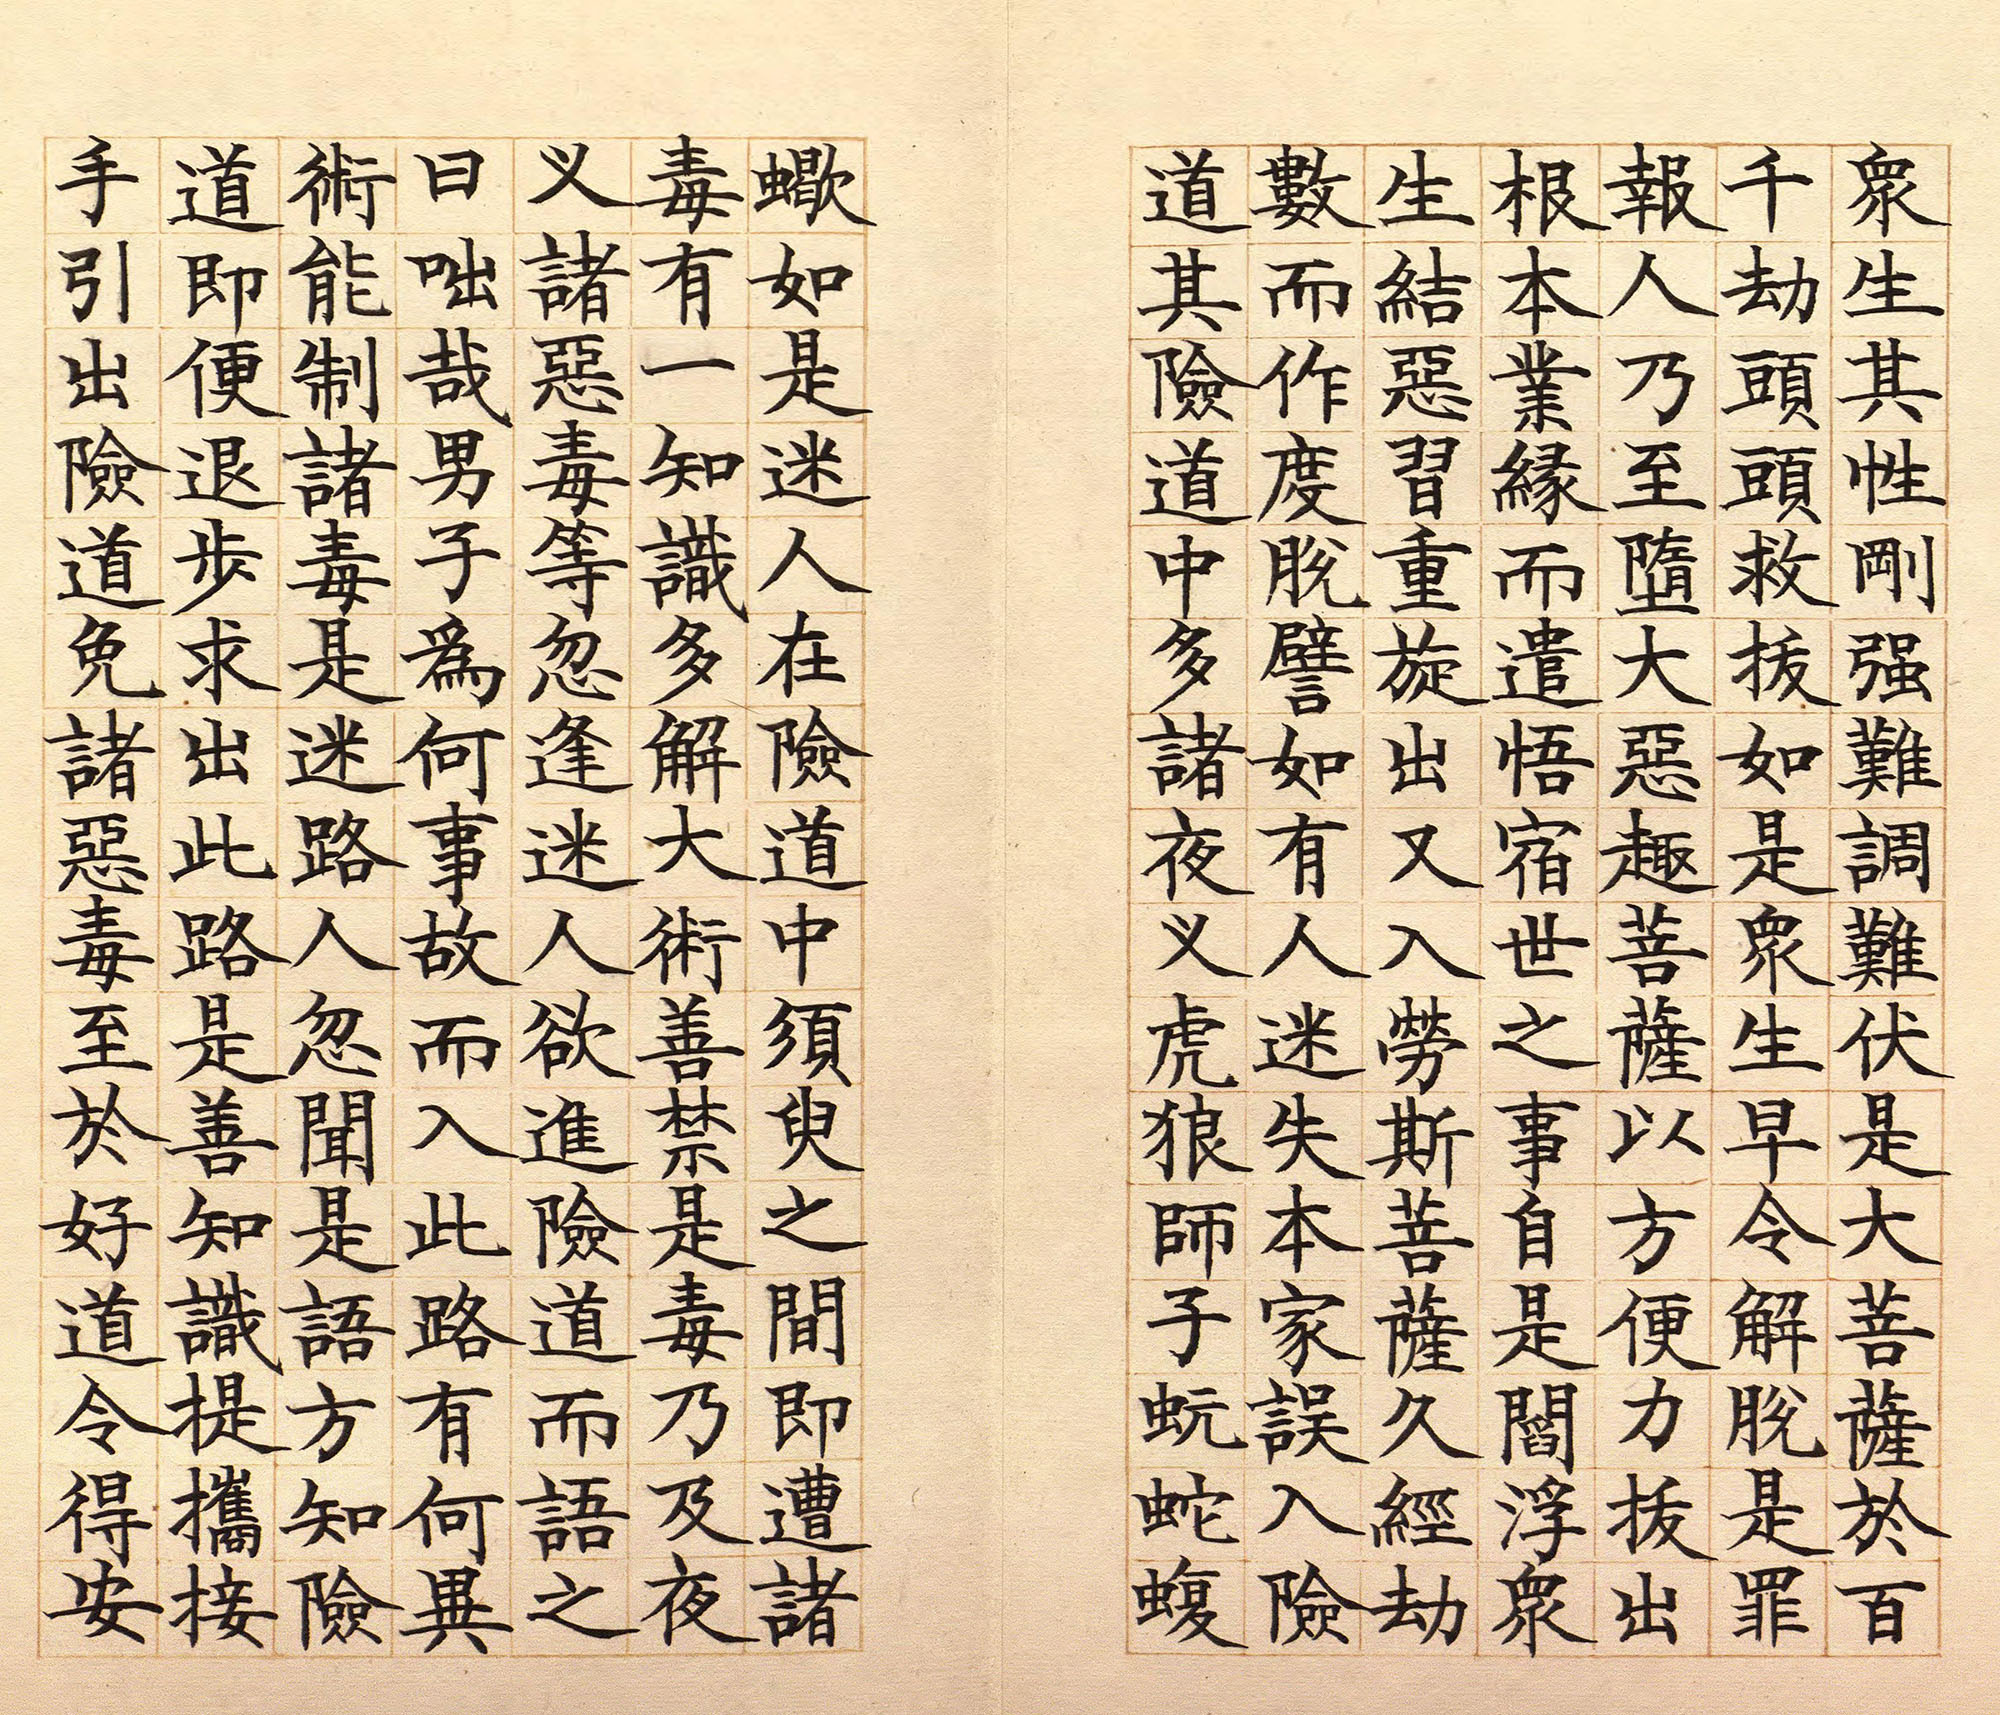 衆生其性剛强難調難伏是大菩薩於百
千劫頭頭救拔如是衆生早令解脫是罪
報人乃至墮大惡趣菩薩以方便力拔出
根本業緣而遣悟宿世之事自是閻浮衆
生結惡習重旋出又入勞斯菩薩久經劫
數而作度脫譬如有人迷失本家誤入險
道其險道中多諸夜义虎狼師子蚖蛇蝮
蠍如是迷人在險道中須臾之間即遭諸
毒有一知識多解大術善禁是毒乃及夜
义諸惡毒等忽逢迷人欲進險道而語之
曰咄哉男子爲何事故而入此路有何異
術能制諸毒是迷路人忽聞是語方知險
道即便退步求出此路是善知識提攜接
手引出險道免諸惡毒至於好道令得安